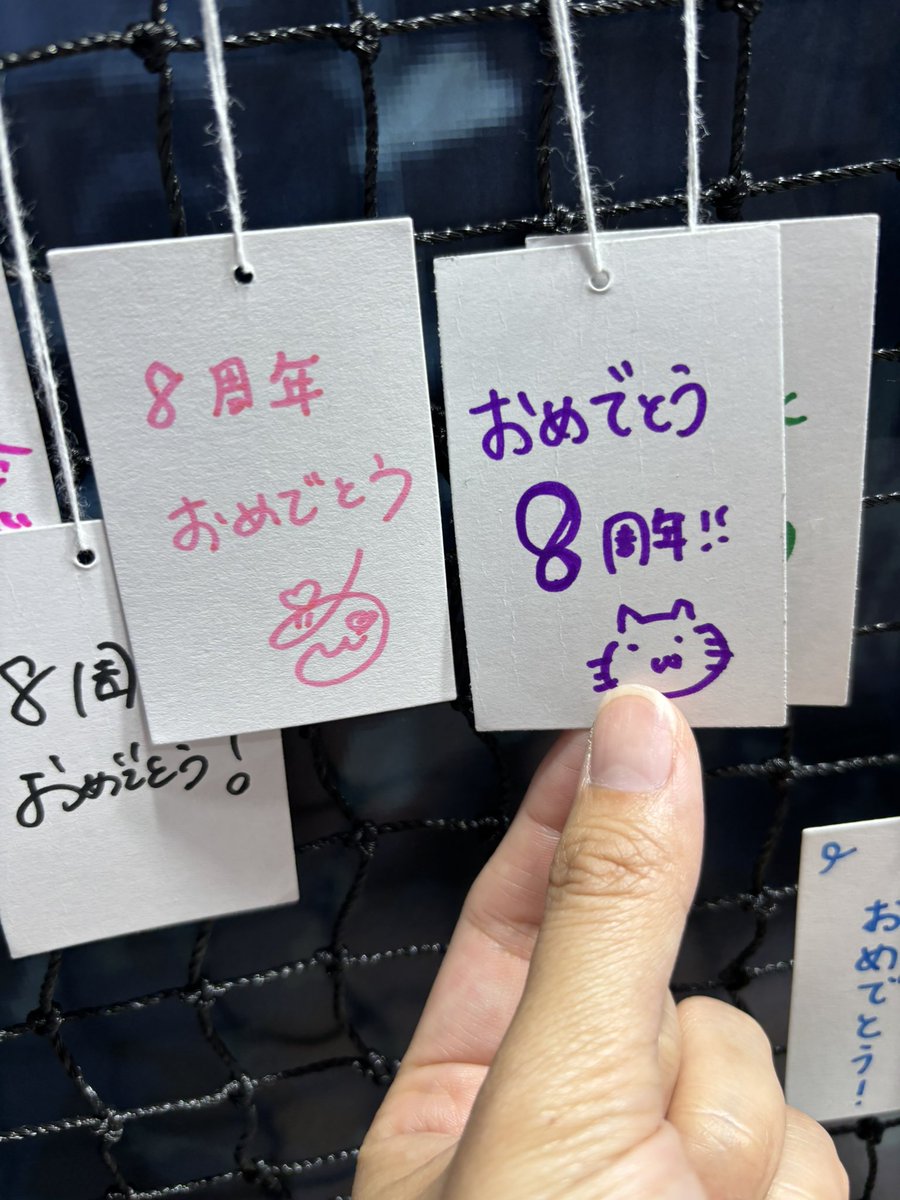 8周年
おめでとう
おめでとう
8周年!!
8周
おめでとう!
おめでとう!